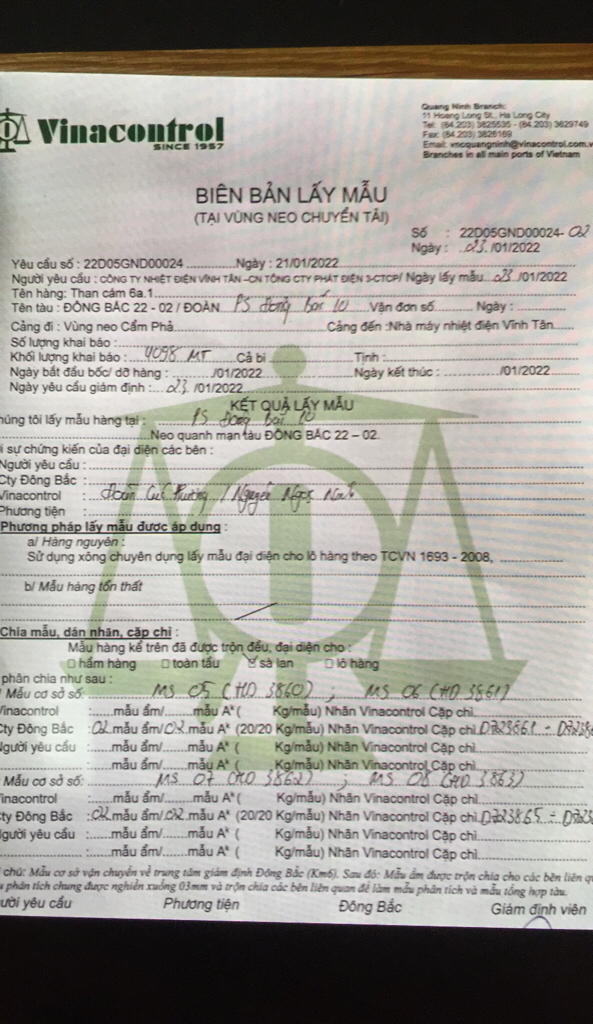 Vinacontrol
SINCE 1957
Quang Ninh Branch:
11 Hoang Long St., Ha Long City
Tel: (84.203) 3825535 - (84.203) 3629749
Fax: (84.203) 3826169
Email: vncquangninh@vinacontrol.com.v
Branches in all main ports of Vietnam
BIÊN BẢN LẤY MẪU
(TẠI VÙNG NEO CHUYỂN TẢI)
Số : 22D05GND00024-02
Ngày : 23/01/2022
Yêu cầu số : 22D05GND00024 Ngày : 21/01/2022
Người yêu cầu : CÔNG TY NHIỆT ĐIỆN VĨNH TÂN -CN TỔNG CTY PHÁT ĐIỆN 3-CTCP/ Ngày lấy mẫu 23/01/2022
Tên hàng: Than cám 6a.1
Tên tàu : ĐÔNG BẮC 22 - 02 / ĐOÀN PS Đông Bắc 10 Vận đơn số Ngày :
Cảng đi : Vùng neo Cẩm Phả Cảng đến :Nhà máy nhiệt điện Vĩnh Tân
Số lượng khai báo :
Khối lượng khai báo : 4098 MT Cả bì Tịnh :
Ngày bắt đầu bốc/ dỡ hàng : /01/2022 Ngày kết thúc : /01/2022
Ngày yêu cầu giám định : 23/01/2022
KẾT QUẢ LẤY MẪU
húng tôi lấy mẫu hàng tại : PS Đông Bắc 10
Neo quanh mạn tàu ĐÔNG BẮC 22 – 02.
i sự chứng kiến của đại diện các bên :
Người yêu cầu :
Cty Đông Bắc :
Vinacontrol : Đoàn / Nguyễn Ngọc
Phương tiện :
Phương pháp lấy mẫu được áp dụng :
a/ Hàng nguyên :
Sử dụng xông chuyên dụng lấy mẫu đại diện cho lô hàng theo TCVN 1693 - 2008,
b/ Mẫu hàng tổn thất
Chia mẫu, dán nhãn, cặp chì :
Mẫu hàng kể trên đã được trộn đều, đại diện cho :
hầm hàng toàn tầu sà lan lô hàng
phân chia như sau :
Mẫu cơ sở số: MS 05 (HD 3860) ; MS 06 (HD 3861)
Vinacontrol : mẫu ẩm/ mẫu A* ( Kg/mẫu) Nhãn Vinacontrol Cặp chì
Cty Đông Bắc : 02 mẫu ẩm/ 02 mẫu A* (20/20 Kg/mẫu) Nhãn Vinacontrol Cặp chì
Người yêu cầu : mẫu ẩm/ mẫu A* ( Kg/mẫu) Nhãn Vinacontrol Cặp chì
mẫu ẩm/ mẫu A* ( Kg/mẫu) Nhãn Vinacontrol Cặp chì
Mẫu cơ sở số: MS 07 (HD 3862) ; MS 08 (HD 3863)
inacontrol : mẫu ẩm/ mẫu A* ( Kg/mẫu) Nhãn Vinacontrol Cặp chì
ty Đông Bắc : 02 mẫu ẩm/ 02 mẫu A* (20/20 Kg/mẫu) Nhãn Vinacontrol Cặp chì
gười yêu cầu : mẫu ẩm/ mẫu A* ( Kg/mẫu) Nhãn Vinacontrol Cặp chì
mẫu ẩm/ mẫu A* ( Kg/mẫu) Nhãn Vinacontrol Cặp chì
chú: Mẫu cơ sở vận chuyển về trung tâm giám định Đông Bắc (Km6). Sau đó: Mẫu ẩm được trộn chia cho các bên liên q
phân tích chung được nghiền xuống 03mm và trộn chia các bên liên quan để làm mẫu phân tích và mẫu tổng hợp tàu.
ười yêu cầu Phương tiện Đông Bắc Giám định viên